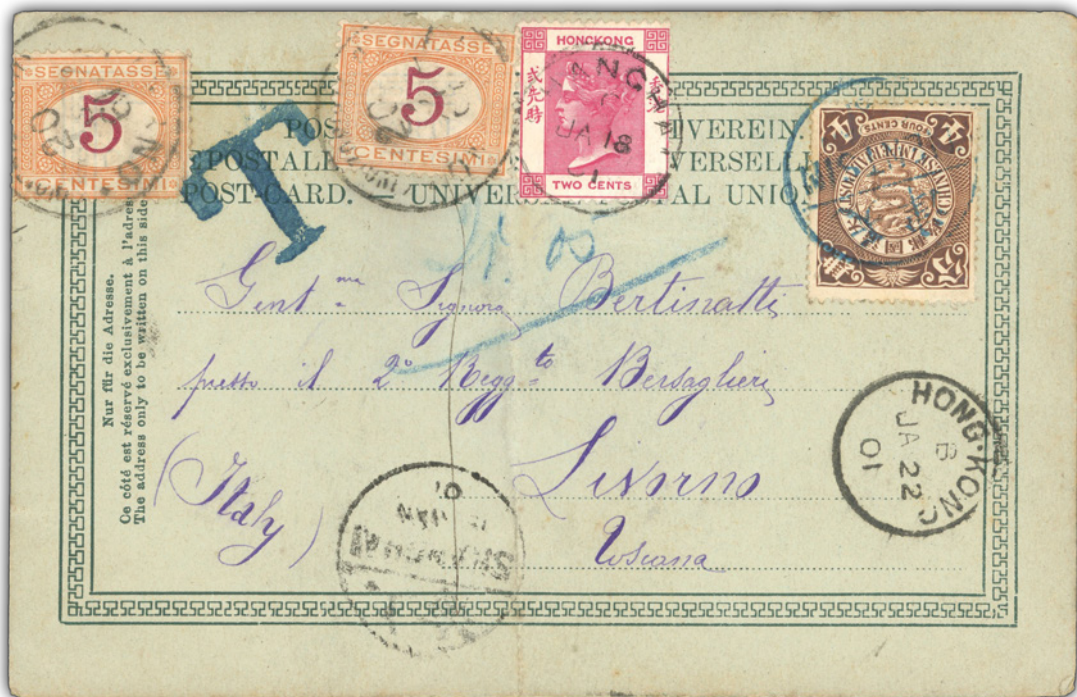 SEGNATASSE
5
CENTESIMI
SEGNATASSE
5
CENTESIMI
HONGKONG
TWO CENTS
SHANGHAI
JA 18
01
4 4
FOUR CENTS
CHINESE IMPERIAL POST
T
POSTALE UNIVERSELLE
POST-CARD. UNIVERSAL POSTAL UNION
Nur für die Adresse.
Ce côté est réservé exclusivement à l'adresse
The address only to be written on this side
Gent.me Signora Bertinatti
presso il 2° Regg.to Bersaglieri
Livorno
(Italy)
Toscana
HONG-KONG
B
JA 22
01
SHANGHAI
JAN
01